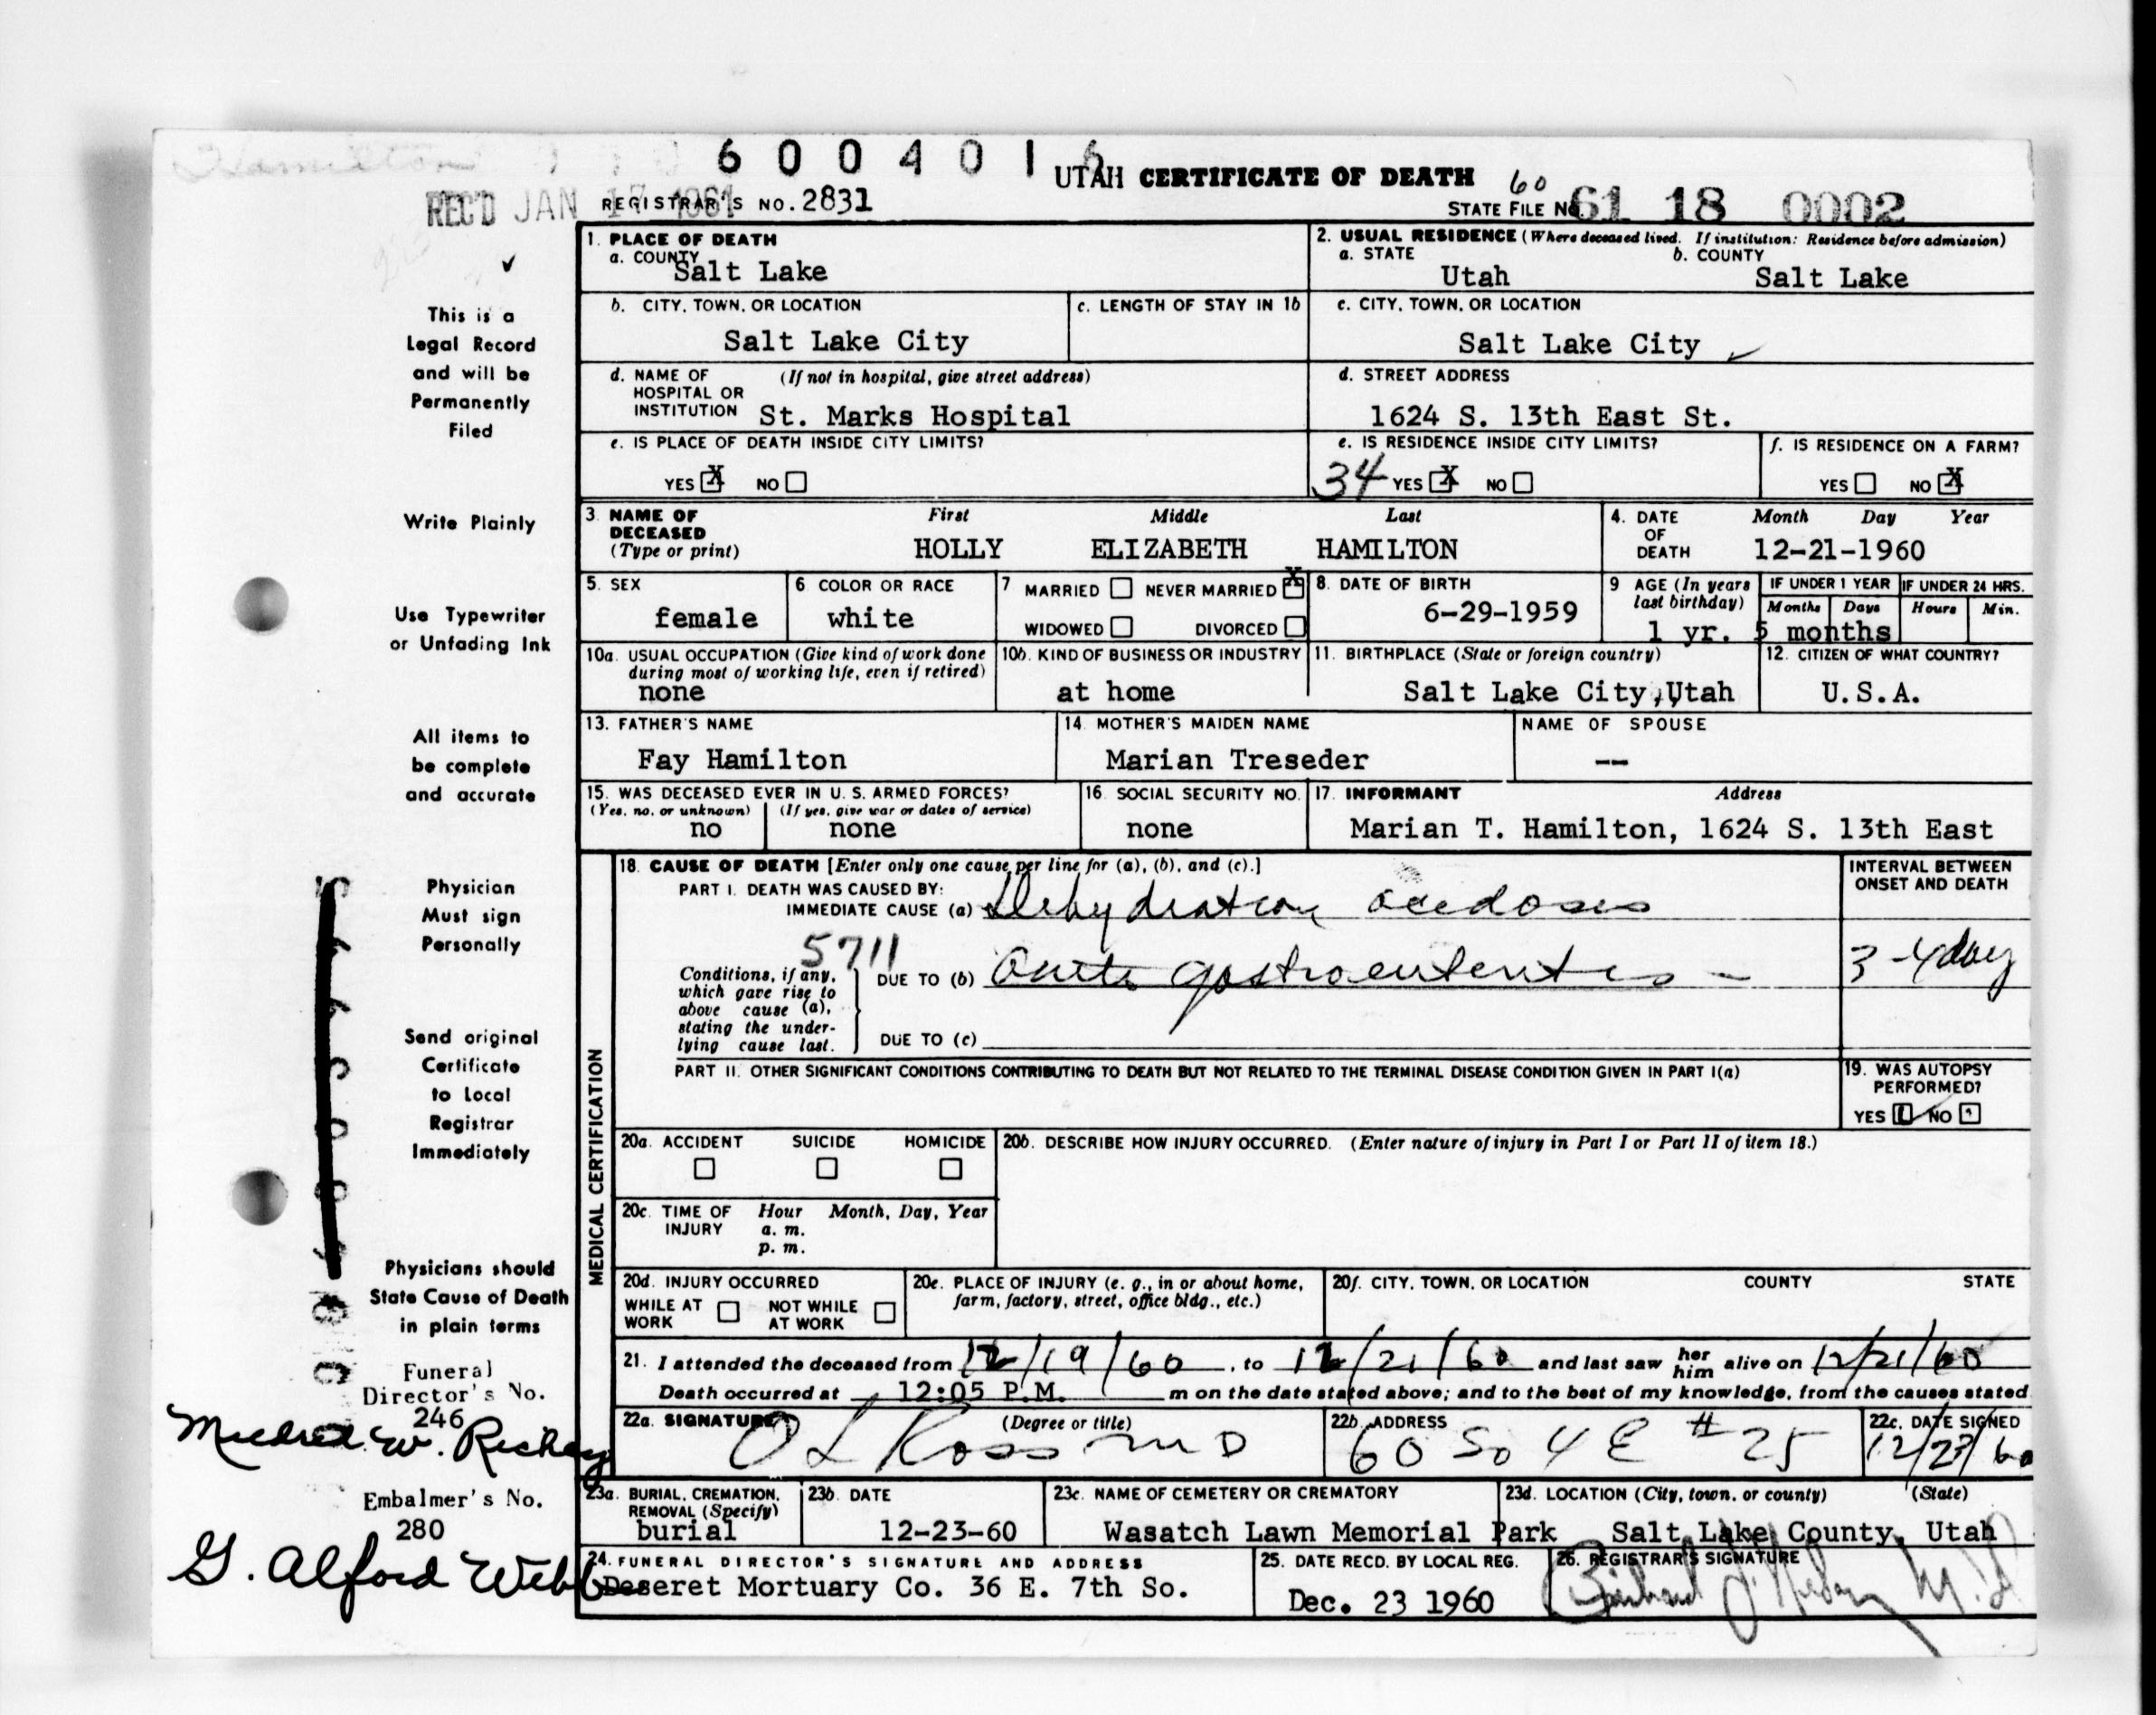 6 0 0 4 0 1 6
UTAH CERTIFICATE OF DEATH
REC'D JAN 17 1961
REGISTRAR'S NO. 2831
60
STATE FILE NO. 61 18 0002
1. PLACE OF DEATH
a. COUNTY
Salt Lake
2. USUAL RESIDENCE (Where deceased lived. If institution: Residence before admission)
a. STATE
Utah
b. COUNTY
Salt Lake
b. CITY, TOWN, OR LOCATION
Salt Lake City
c. LENGTH OF STAY IN 1b
c. CITY, TOWN, OR LOCATION
Salt Lake City
d. NAME OF (If not in hospital, give street address)
HOSPITAL OR
INSTITUTION St. Marks Hospital
d. STREET ADDRESS
1624 S. 13th East St.
e. IS PLACE OF DEATH INSIDE CITY LIMITS?
YES X NO
e. IS RESIDENCE INSIDE CITY LIMITS?
34 YES X NO
f. IS RESIDENCE ON A FARM?
YES NO X
3. NAME OF
DECEASED
(Type or print)
First Middle Last
HOLLY ELIZABETH HAMILTON
4. DATE
OF
DEATH
Month Day Year
12-21-1960
5. SEX
female
6 COLOR OR RACE
white
7 MARRIED NEVER MARRIED X
WIDOWED DIVORCED
8. DATE OF BIRTH
6-29-1959
9 AGE (In years
last birthday)
1 yr.
IF UNDER 1 YEAR
Months Days
5 months
IF UNDER 24 HRS.
Hours Min.
10a. USUAL OCCUPATION (Give kind of work done
during most of working life, even if retired)
none
10b. KIND OF BUSINESS OR INDUSTRY
at home
11. BIRTHPLACE (State or foreign country)
Salt Lake City, Utah
12. CITIZEN OF WHAT COUNTRY?
U.S.A.
13. FATHER'S NAME
Fay Hamilton
14. MOTHER'S MAIDEN NAME
Marian Treseder
NAME OF SPOUSE
--
15. WAS DECEASED EVER IN U. S. ARMED FORCES?
(Yes, no, or unknown) (If yes, give war or dates of service)
no none
16. SOCIAL SECURITY NO.
none
17. INFORMANT Address
Marian T. Hamilton, 1624 S. 13th East
MEDICAL CERTIFICATION
18. CAUSE OF DEATH [Enter only one cause per line for (a), (b), and (c).]
PART I. DEATH WAS CAUSED BY:
IMMEDIATE CAUSE (a) Dehydration acidosis
INTERVAL BETWEEN
ONSET AND DEATH
5711
Conditions, if any,
which gave rise to
above cause (a),
stating the under-
lying cause last.
DUE TO (b) Acute gastroenteritis -
3-4 day
DUE TO (c)
PART II. OTHER SIGNIFICANT CONDITIONS CONTRIBUTING TO DEATH BUT NOT RELATED TO THE TERMINAL DISEASE CONDITION GIVEN IN PART I(a)
19. WAS AUTOPSY
PERFORMED?
YES NO
20a. ACCIDENT SUICIDE HOMICIDE
20b. DESCRIBE HOW INJURY OCCURRED. (Enter nature of injury in Part I or Part II of item 18.)
20c. TIME OF
INJURY
Hour Month, Day, Year
a. m.
p. m.
20d. INJURY OCCURRED
WHILE AT
WORK
NOT WHILE
AT WORK
20e. PLACE OF INJURY (e. g., in or about home,
farm, factory, street, office bldg., etc.)
20f. CITY, TOWN, OR LOCATION COUNTY STATE
21. I attended the deceased from 12/19/60, to 12/21/60 and last saw her him alive on 12/21/60
Death occurred at 12:05 P.M. m on the date stated above; and to the best of my knowledge, from the causes stated
22a. SIGNATURE (Degree or title)
O L Ross MD
22b. ADDRESS
60 So 4 E #25
22c. DATE SIGNED
12/23/60
23a. BURIAL, CREMATION,
REMOVAL (Specify)
burial
23b. DATE
12-23-60
23c. NAME OF CEMETERY OR CREMATORY
Wasatch Lawn Memorial Park
23d. LOCATION (City, town, or county) (State)
Salt Lake County, Utah
24. FUNERAL DIRECTOR'S SIGNATURE AND ADDRESS
Deseret Mortuary Co. 36 E. 7th So.
25. DATE RECD. BY LOCAL REG.
Dec. 23 1960
26. REGISTRAR'S SIGNATURE
This is a
Legal Record
and will be
Permanently
Filed
Write Plainly
Use Typewriter
or Unfading Ink
All items to
be complete
and accurate
Physician
Must sign
Personally
Send original
Certificate
to Local
Registrar
Immediately
Physicians should
State Cause of Death
in plain terms
Funeral
Director's No.
246
Embalmer's No.
280
G. Alford Webb